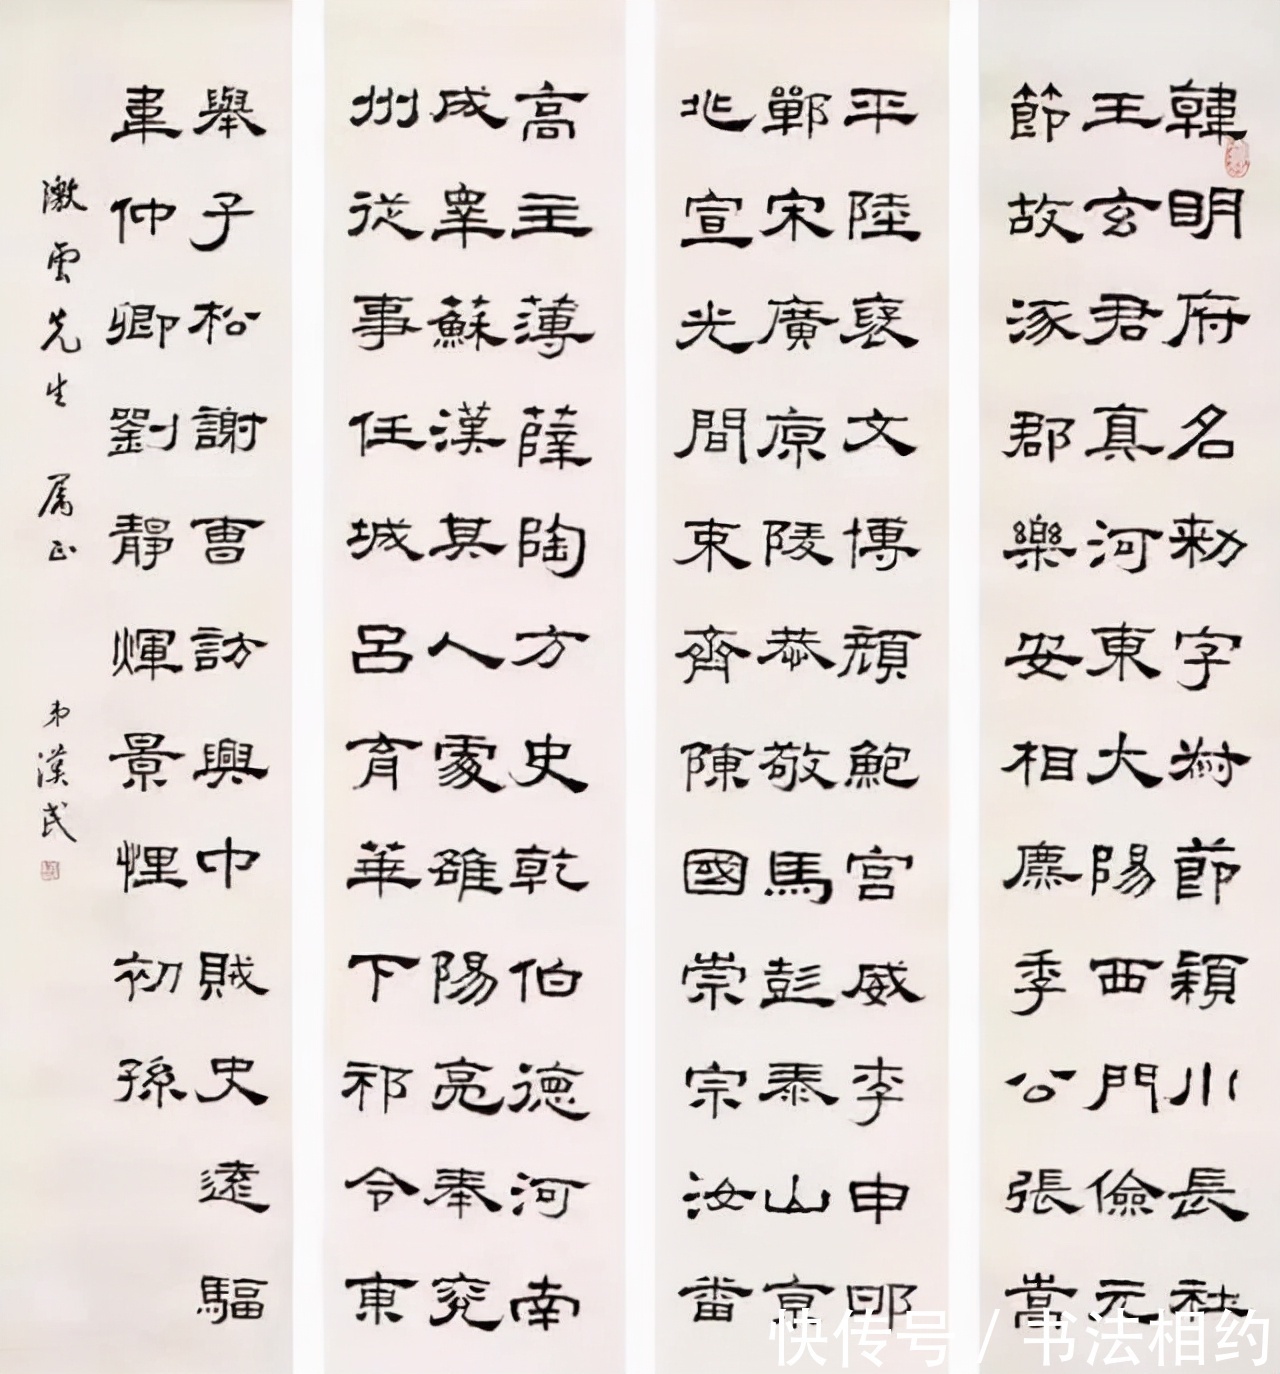 韓明府名勑字叔節穎川長社
王玄君真河東大陽西門儉元
節故涿郡樂安相廉季公張嵩
平陸裒文博顏鮑宮威李申邯
鄲宋廣京陵恭敬馬彭泰山京
兆宣光間束齊陳國崇宗汝番
高主薄薛陶方史乾伯德河南
成睾蘇漢其人處雒陽亮奉兖
州從事任城呂育華下祁令東
舉子松謝曹訪興中賊史遠
韋仲卿劉靜煇景悝初孫
澂雲先生 属正 弟漢民
快传号/书法相约